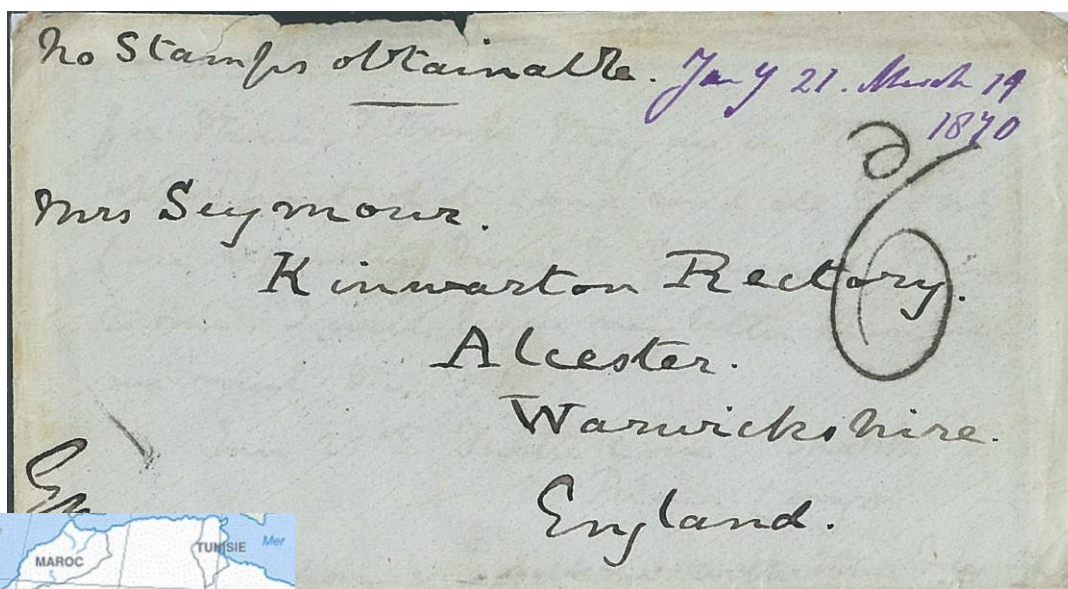 No Stamps obtainable.
Jany 21. March 19
1870
6
Mrs Seymour.
Kinwarton Rectory.
Alcester.
Warwickshire.
England.
MAROC
TUNISIE
Mer